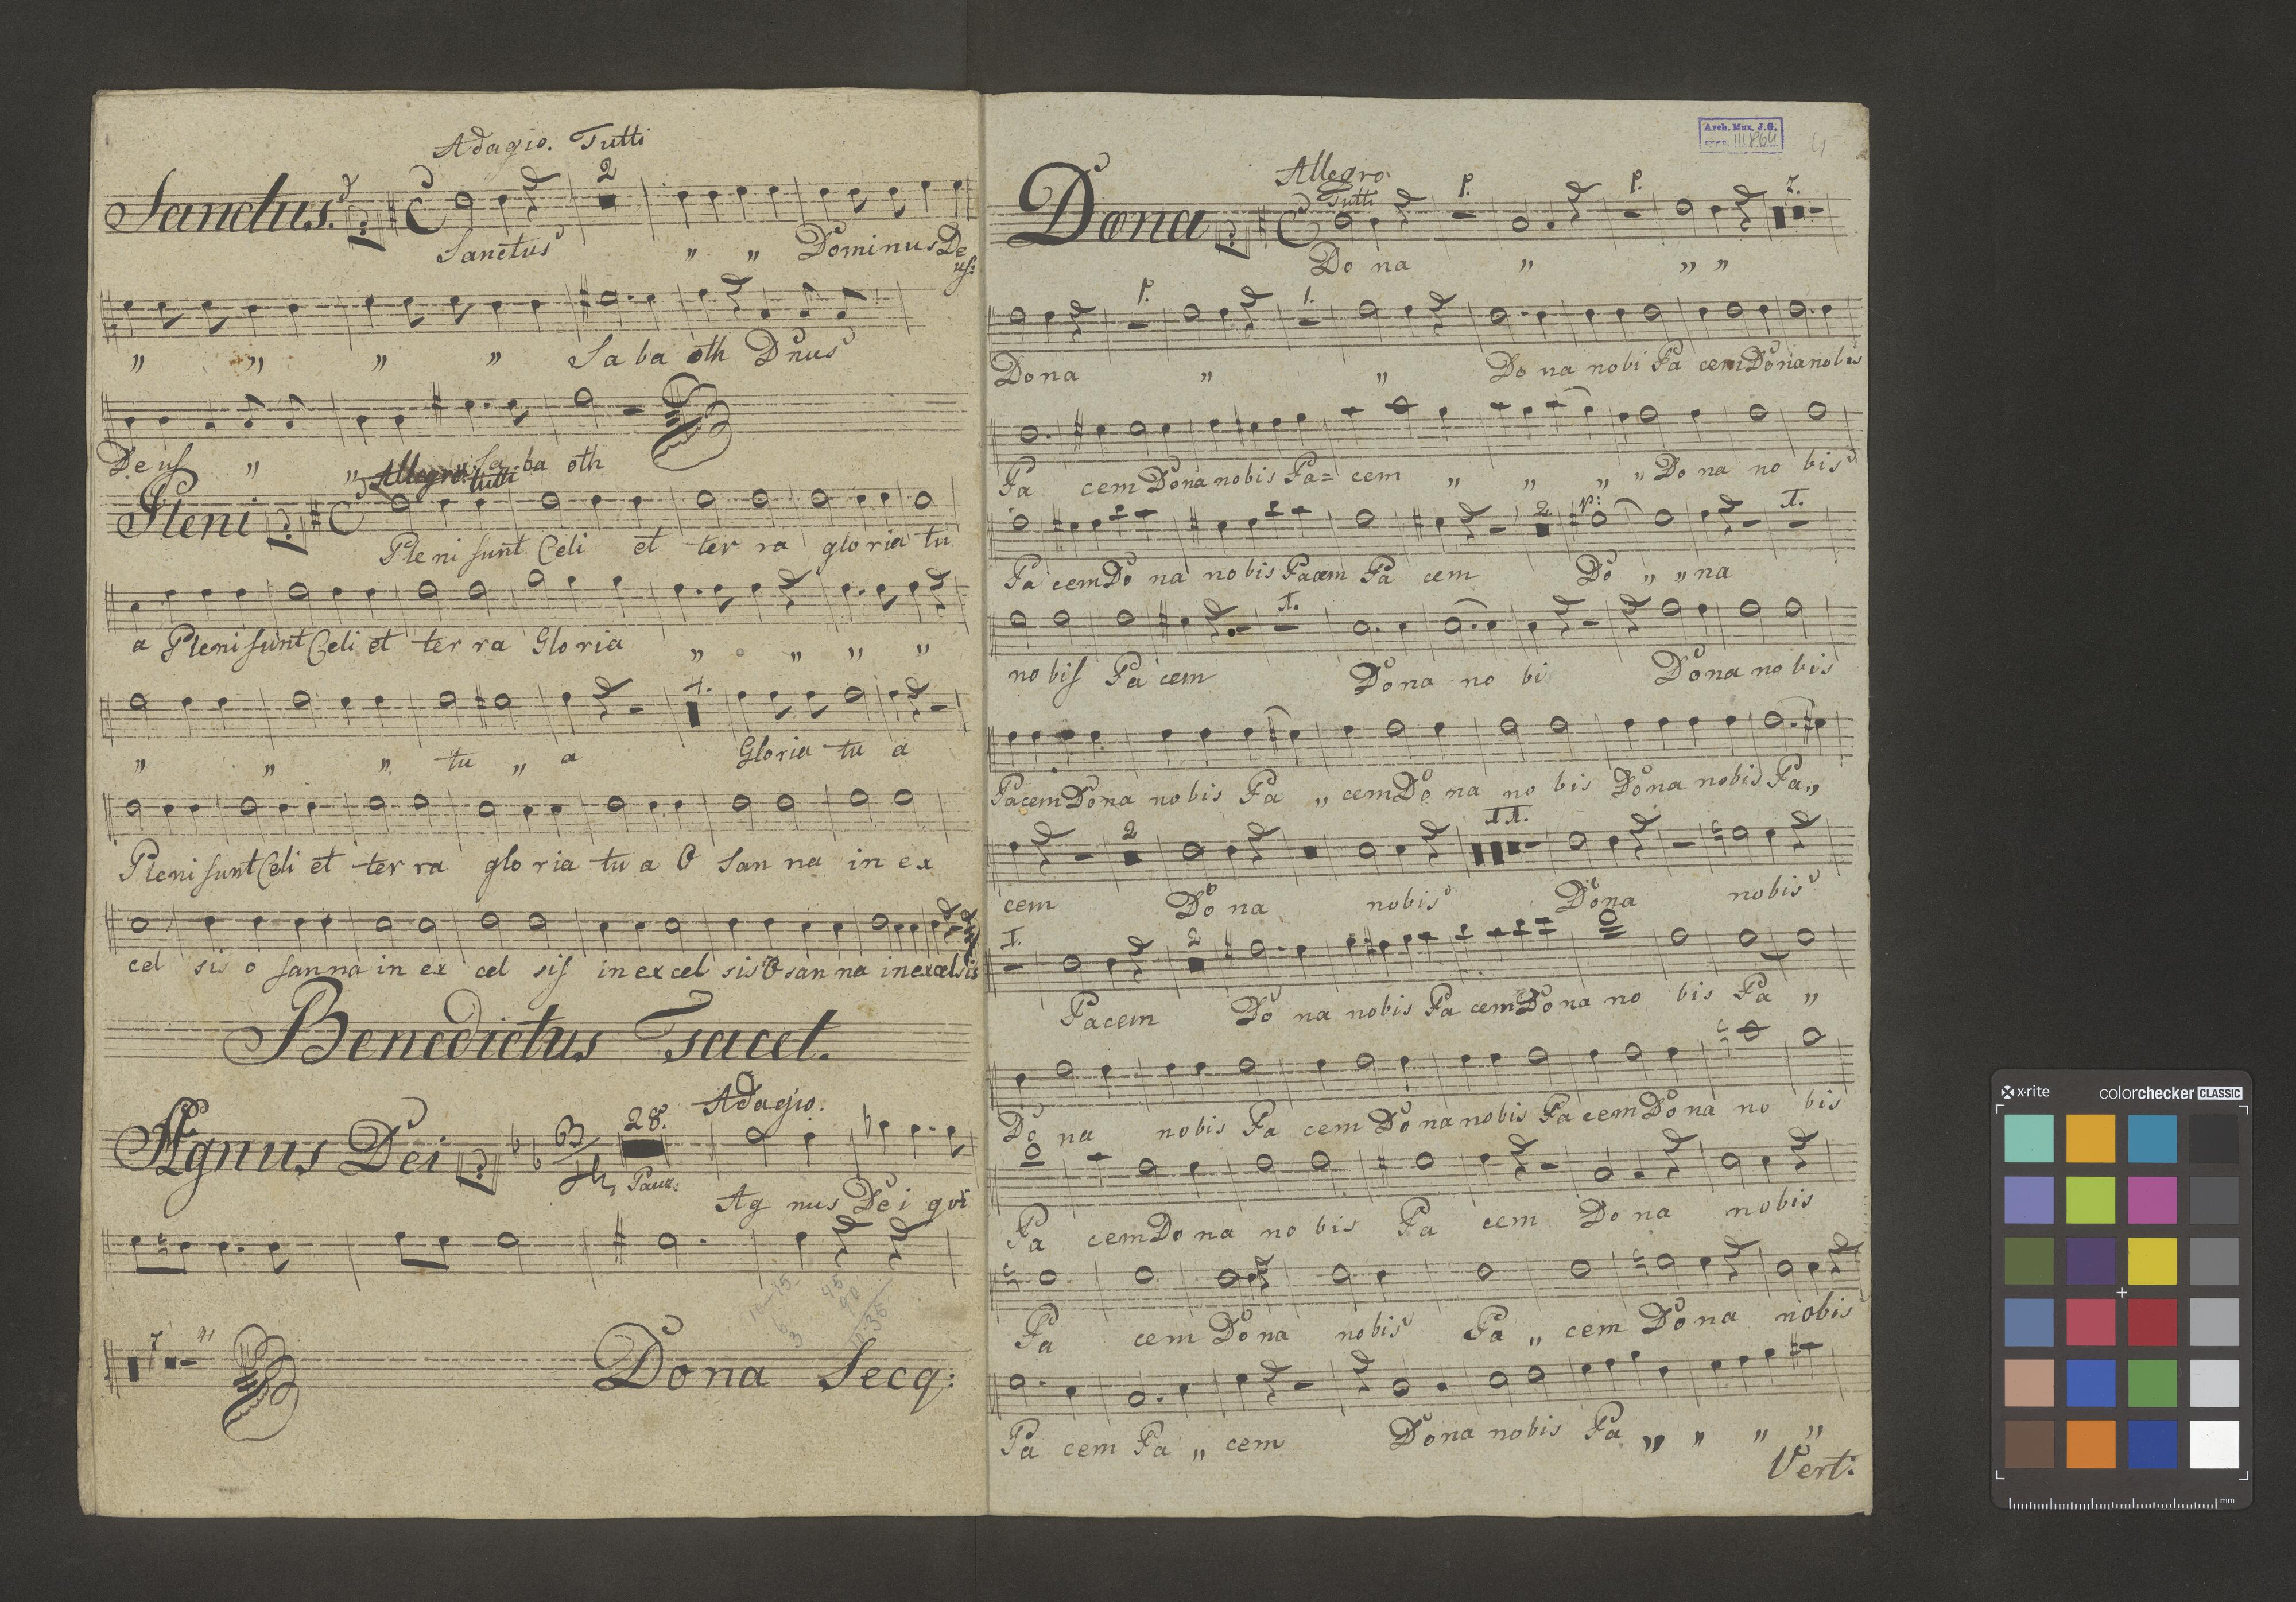 Adagio. Tutti
Sanctus. 2
Sanctus „ „ Dominus De
us:
„ „ „ „ Sa ba oth Dnus
Deus „ „ Sa ba oth
Allegro. tutti
Pleni
Pleni sunt Celi et ter ra gloria tu
a Pleni sunt Celi et ter ra Gloria „ „ „ „
1.
„ „ „ tu „ a Gloria tu a
Pleni sunt Celi et ter ra glo ria tu a O san na in ex
cel sis o sanna in ex cel sis in excel sis O san na in excelsis
Benedictus Tacet.
Adagio.
Agnus Dei 28.
Pauz:
Ag nus Dei qui
15 45
90
63
7
Dona Secq:
Arch. Muz. J.G.
III 864
4
Allegro
Tutti
Dona
Do na „ „ „
1.
Dona „ „ Do na nobi Pa cem Dona nobis
Pa cem Dona nobis Pa= cem „ „ „ „ Do na no bis
2 p: 1.
Pa cem Do na no bis Pacem Pa cem Do „ „ na
1.
nobis Pa cem Dona no bi Dona nobis
Pacem Dona nobis Pa „ cem Do na no bis Dona nobis Pa „
2 11.
cem Do na nobis Dona nobis
1. 2
Pacem Do na nobis Pa cem Dona no bis Pa „
Do na nobis Pa cem Dona nobis Pa cem Do na no bis
Pa cem Dona no bis Pa cem Do na nobis
Pa cem Do na nobis Pa „ cem Do na nobis
Pa cem Pa „ cem Dona nobis Pa „ „ „ „
Vert:
x·rite colorchecker CLASSIC
mm